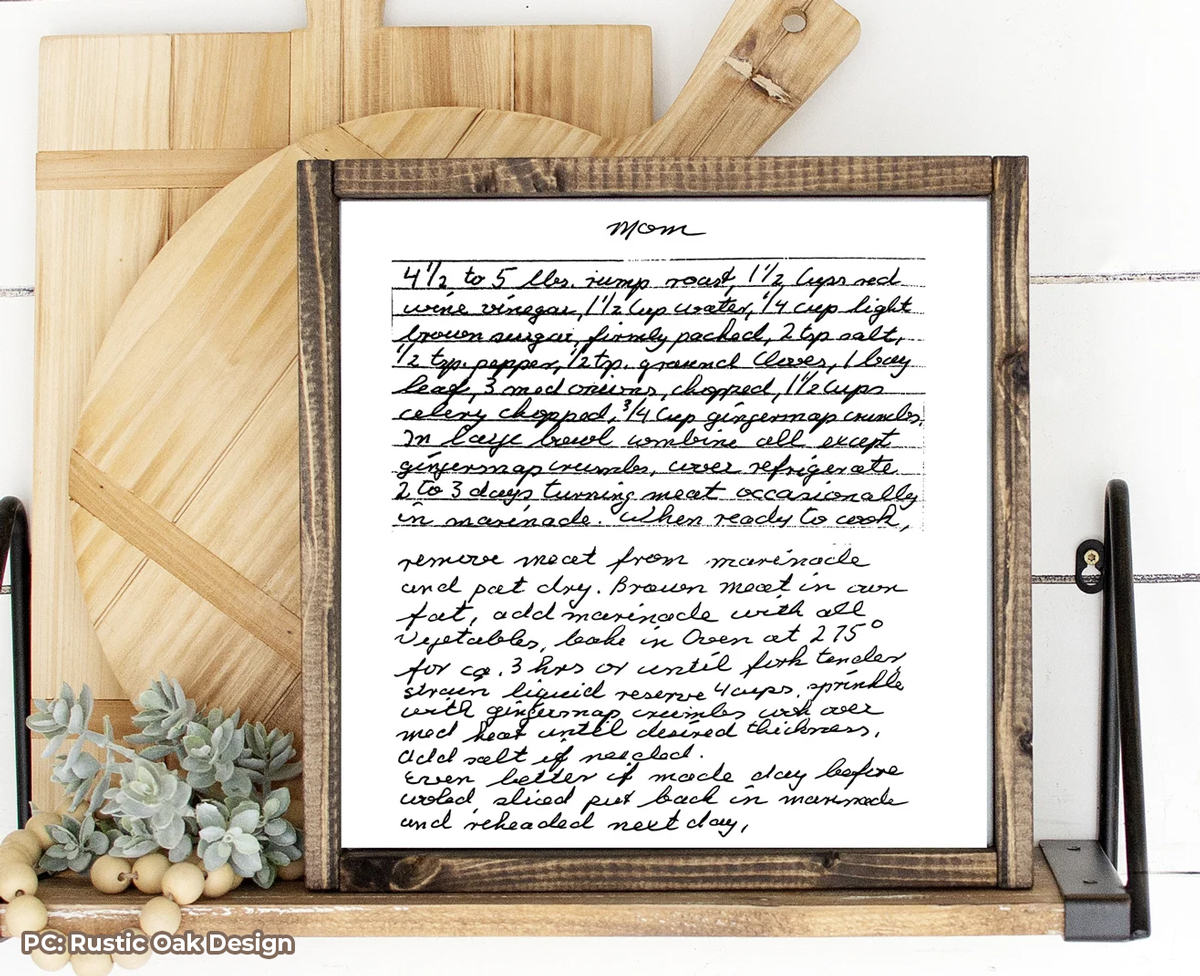 Mom
4 1/2 to 5 lbs. rump roast, 1 1/2 Cups red
wine vinegar, 1 1/2 Cup water, 1/4 cup light
brown sugar, firmly packed, 2 tsp salt,
1/2 tsp. pepper, 1/2 tsp. ground Cloves, 1 bay
leaf, 3 med onions, chopped, 1 1/2 Cups
celery chopped, 3/4 Cup gingersnap crumbs.
In large bowl combine all except
gingersnap crumbs, cover refrigerate
2 to 3 days turning meat occasionally
in marinade. When ready to cook,
remove meat from marinade
and pat dry. Brown meat in own
fat, add marinade with all
Vegetables, bake in Oven at 275°
for ca. 3 hrs or until fork tender,
strain liquid reserve 4 cups. sprinkle
with gingersnap crumbs cook over
med heat until desired thickness,
add salt if needed.
Even better if made day before
cooled, sliced put back in marinade
and reheaded next day,
PC: Rustic Oak Design